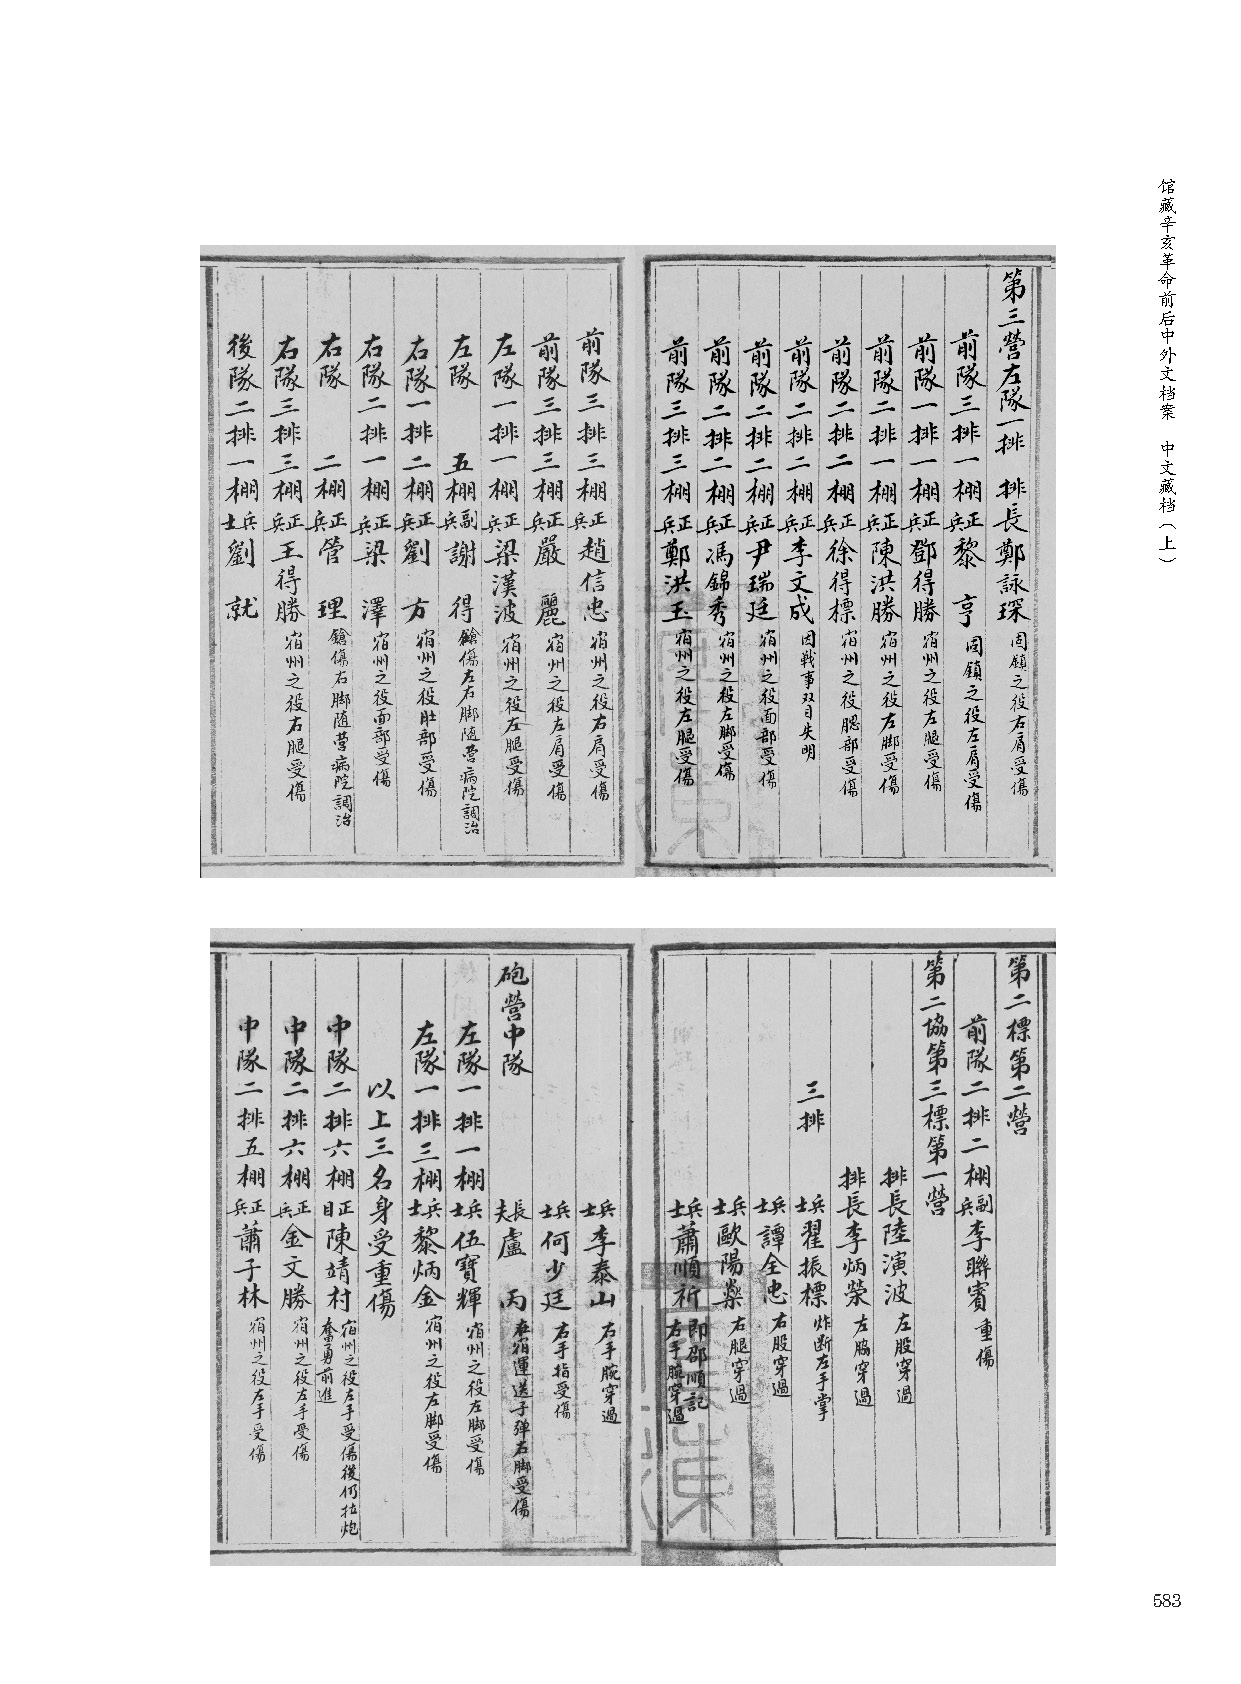 馆藏辛亥革命前后中外文档案　中文藏档（上）
第三營左隊一排　排長鄭詠琛　固鎮之役右肩受傷
前隊三排一棚正兵黎　亨　固鎮之役左肩受傷
前隊一排一棚正兵鄧得勝　宿州之役左腿受傷
前隊二排一棚正兵陳洪勝　宿州之役左脚受傷
前隊二排二棚正兵徐得標　宿州之役腮部受傷
前隊二排二棚正兵李文成　因戰事双目失明
前隊二排二棚正兵尹瑞廷　宿州之役面部受傷
前隊二排二棚正兵馮錦秀　宿州之役左脚受傷
前隊三排三棚正兵鄭洪玉　宿州之役左腿受傷
前隊三排三棚正兵趙信忠　宿州之役右肩受傷
前隊三排三棚正兵嚴　麗　宿州之役左肩受傷
左隊一排一棚正兵梁漢波　宿州之役左腿受傷
左隊　五棚副兵謝　得　鎗傷左右脚随营病院調治
右隊一排二棚正兵劉　方　宿州之役肚部受傷
右隊二排一棚正兵梁　澤　宿州之役面部受傷
右隊　二棚正兵管　理　鎗傷右脚随营病院調治
右隊三排三棚正兵王得勝　宿州之役右腿受傷
後隊二排一棚兵士劉　就
第二標第二營
前隊二排二棚副兵李聯賓　重傷
第二協第三標第一營
排長陸演波　左股穿過
排長李炳榮　左脇穿過
三排　兵士翟振標　炸断左手掌
兵士譚全忠　右股穿過
兵士歐陽燊　右腿穿過
兵士蕭順祈　即邵順記　右手腕穿過
兵士李泰山　右手腕穿過
兵士何少廷　右手指受傷
砲營中隊　長夫盧　丙　在宿運送子弹右脚受傷
左隊一排一棚兵士伍寶輝　宿州之役左脚受傷
左隊一排三棚兵士黎炳金　宿州之役左脚受傷
以上三名身受重傷
中隊二排六棚正目陳靖村　宿州之役左手受傷後仍拉炮奮勇前進
中隊二排六棚正兵金文勝　宿州之役左手受傷
中隊二排五棚正兵蕭子林　宿州之役左手受傷
583